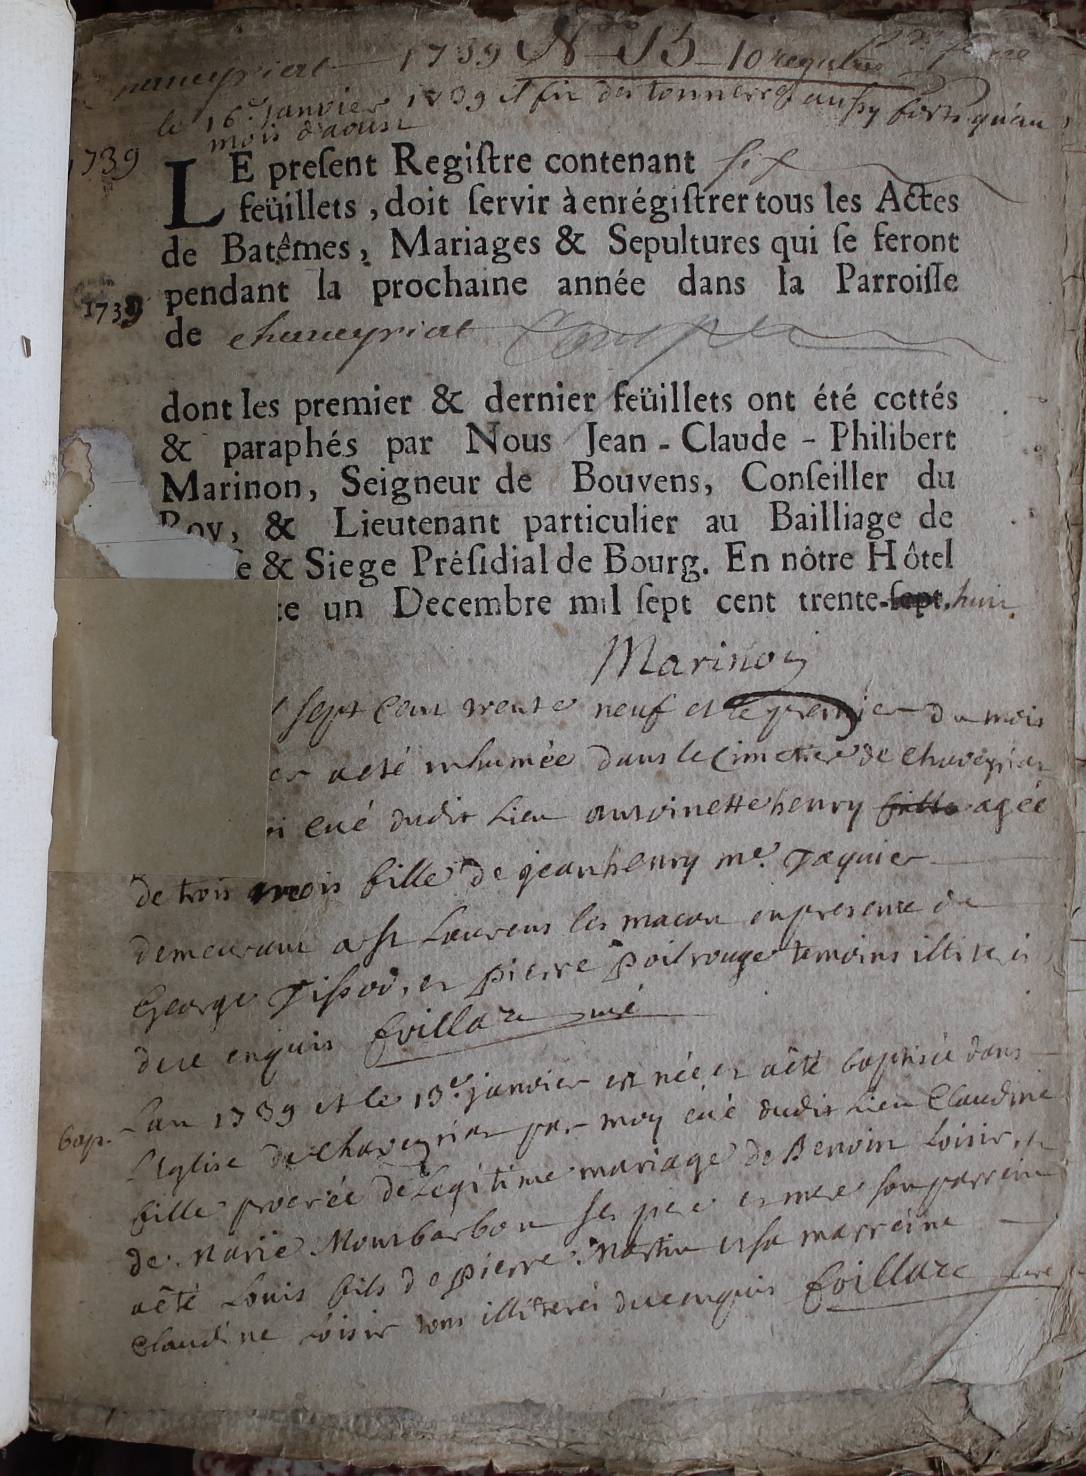 chaneyriat 1739 N 13 10 regultre
le 16e janvier 1739 il fit des tonnerres aussy forts qu'au
mois d'aoust
1739
LE present Registre contenant six
feüillets, doit servir à enrégistrer tous les Actes
de Batêmes, Mariages & Sepultures qui se feront
pendant la prochaine année dans la Parroisse
1739
de chaveyriat
dont les premier & dernier feüillets ont été cottés
& paraphés par Nous Jean-Claude-Philibert
Marinon, Seigneur de Bouvens, Conseiller du
Roy, & Lieutenant particulier au Bailliage de
e & Siege Présidial de Bourg. En nôtre Hôtel
ce un Decembre mil sept cent trente-sept. huit
Marinon
sept cent trente neuf et le premier du mois
er a eté inhumée dans le Cimetier de chaveyriat
curé dudit Lieu antoinette henry fille agée
de trois mois fille de jean henry me. Taquier
demeurant a st Laurens les macon en presence de
George Tissod, et pierre Poilrouge temoins illiterés
de ce enquis Evillaz curé
bap. L'an 1739 et le 13e. janvier est née et a êté baptisée dans
L'eglise de chaveyriat par moy curé dudit Lieu Claudine
fille procréée de Legitime mariage de Benoist Loisir, et
de Marie Montbarbon ses pere et mere son parrein
a êté Louis fils de pierre Martin et sa marreine
Claudine Loisir tous illiterés de ce enquis Evillaz curé